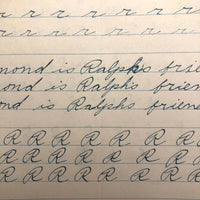 r r r r r r r r
r r r r r r r r
mond is Ralph's frie
ond is Ralph's frien
ond is Ralph's friend
R R R R R R R R
R R R R R R R R
R R R R R R R R